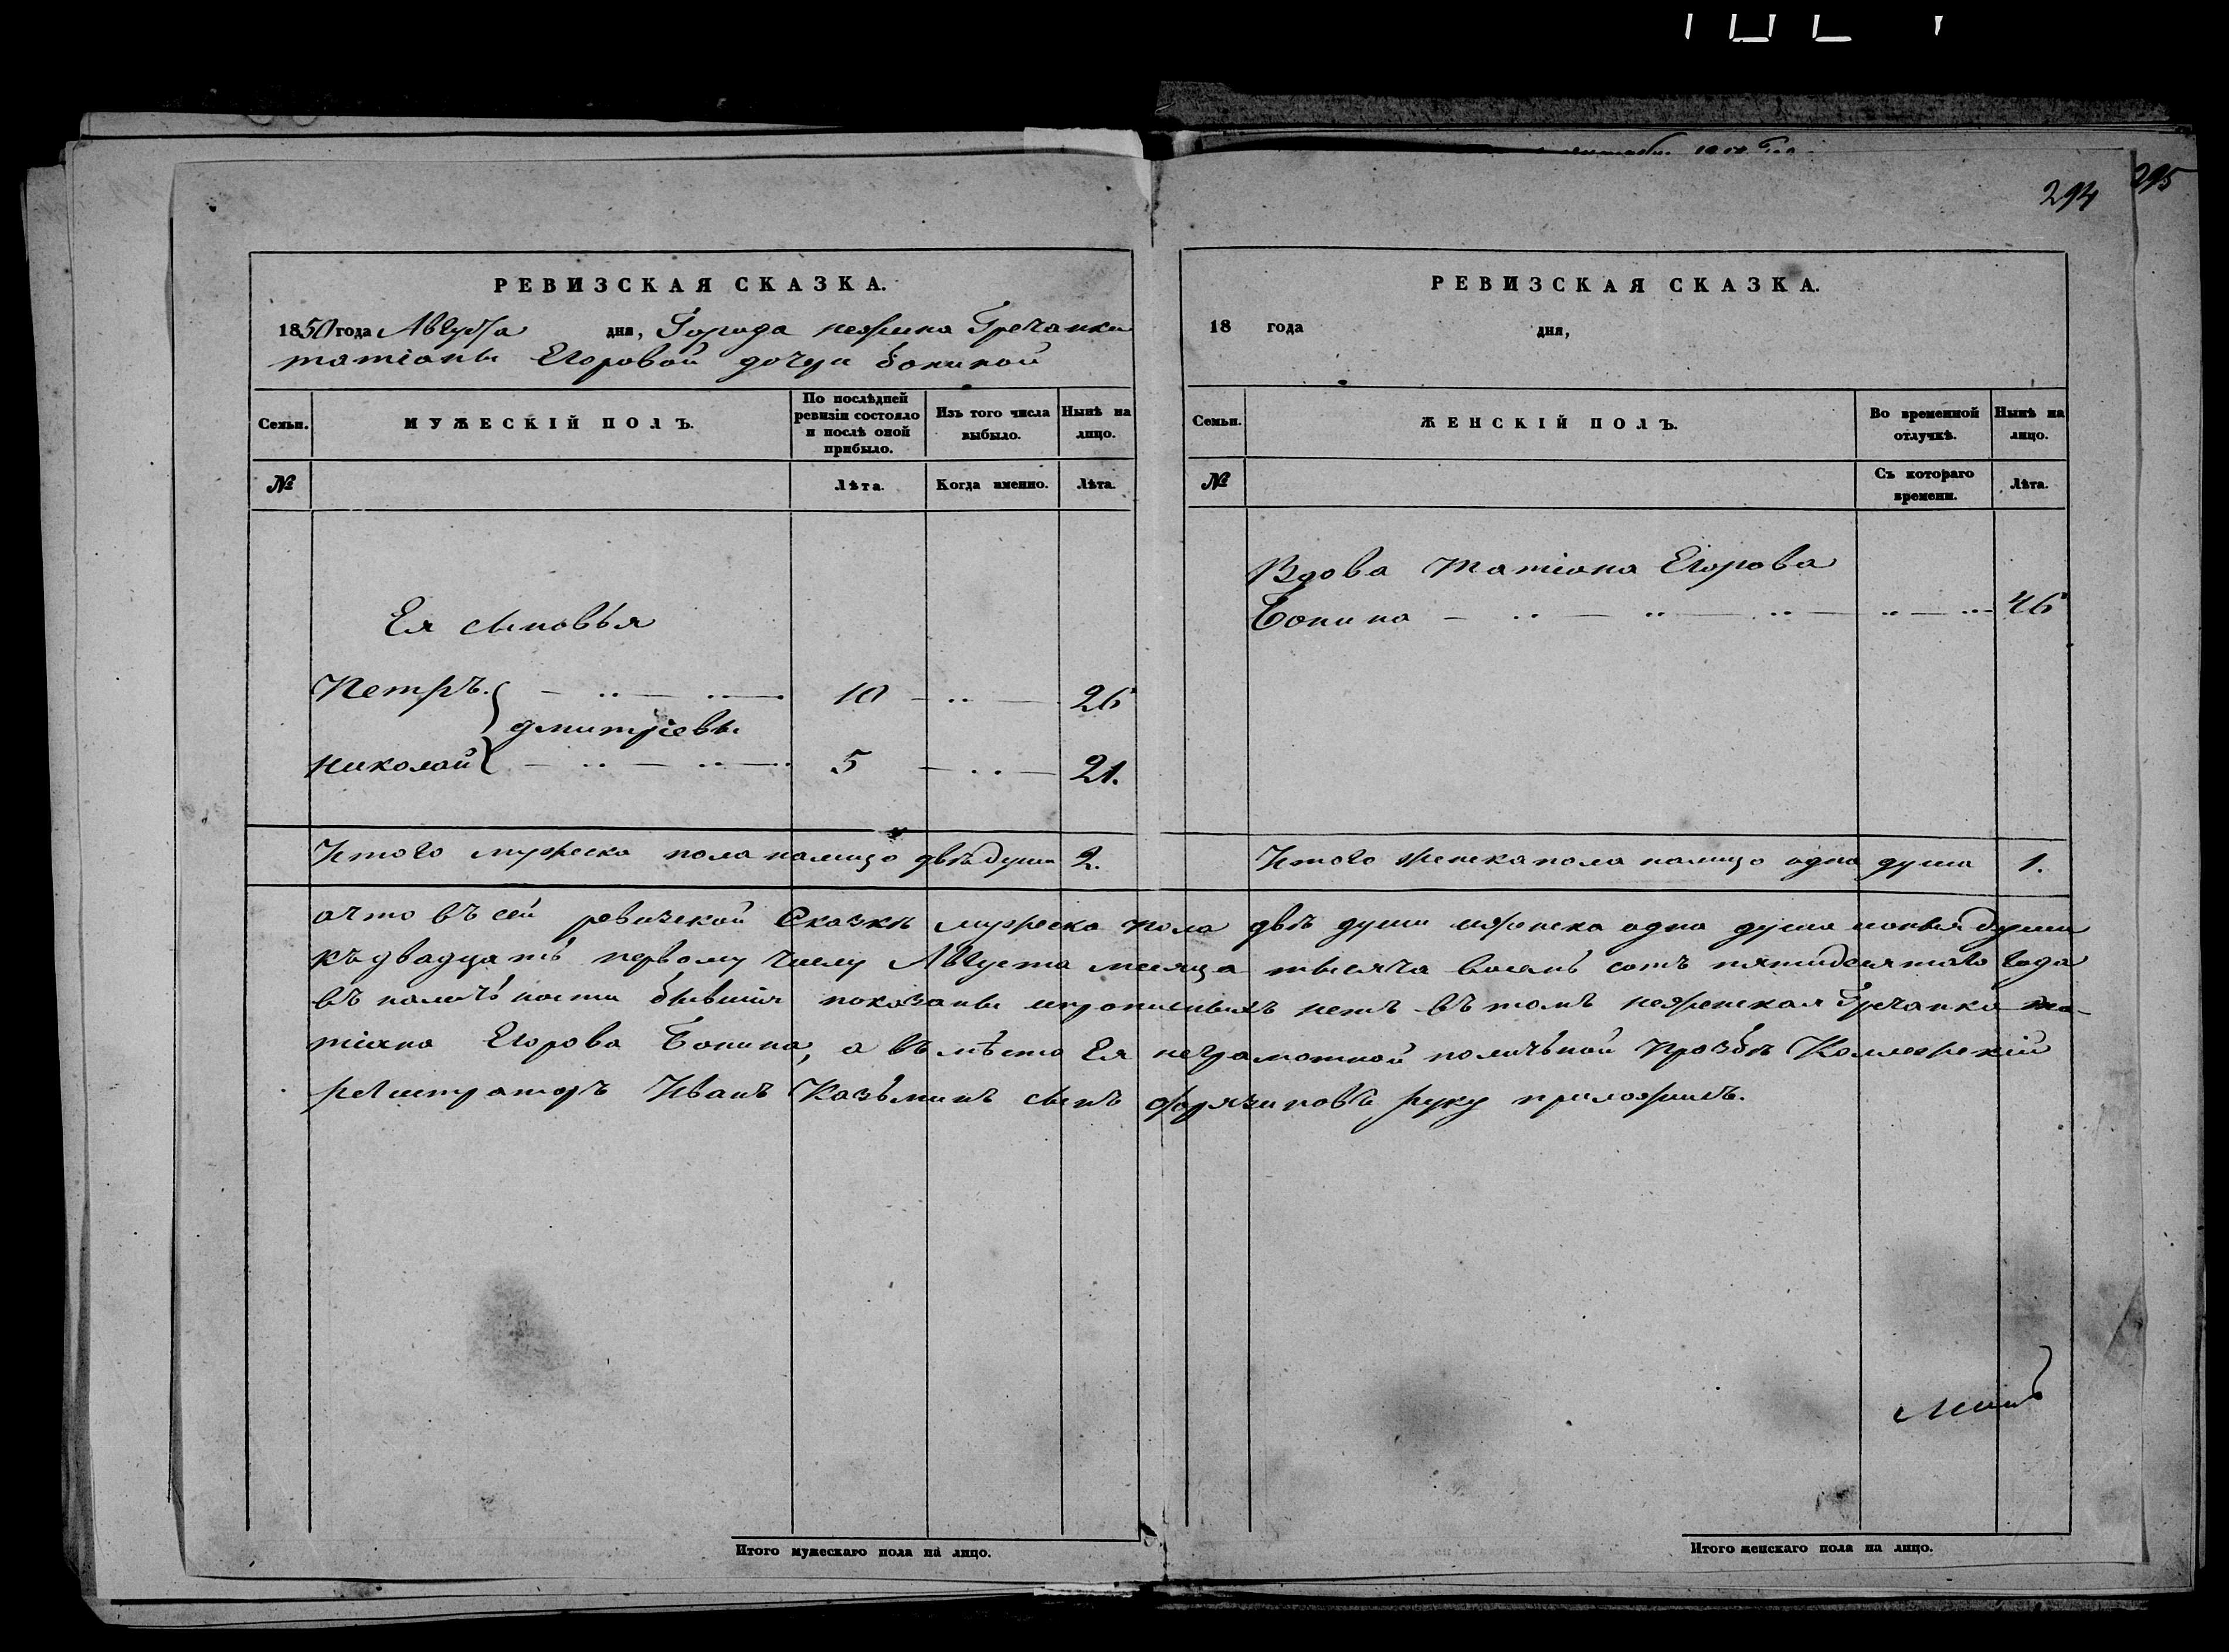 294
295
РЕВИЗСКАЯ СКАЗКА.
1850 года Августа дня, Города нежина Гречанки
татіаны Егоровой дочери бониной
Семьи. МУЖЕСКІЙ ПОЛЪ. По послѣдней ревизіи состояло и послѣ оной прибыло. Изъ того числа выбыло. Нынѣ на лицо.
№ Лѣта. Когда именно. Лѣта.
Ея сыновья
Петръ. 10 26
дмитріевы
николай 5 21.
Итого мужеска пола налицо двѣ души 2.
РЕВИЗСКАЯ СКАЗКА.
18 года дня,
Семьи. ЖЕНСКІЙ ПОЛЪ. Во временной отлучкѣ. Нынѣ на лицо.
№ Съ котораго времени. Лѣта.
Вдова татіана Егорова
Бонина 46
Итого женска пола налицо одна душа 1.
ачто въ сей ревизской Сказкѣ мужеска пола двѣ души иженска одна душа
къ двадцать первому числу Августа месяца тысяча восемь сотъ пятидесятаго года
въ наличности бывшія показаны ипрописныхъ нетъ въ томъ неженская Гречанка та-
тіана Егорова Бонина, а въ мѣсто Ея неграмотной поличьной прозбѣ Коллежскій
регистраторъ Иванъ Казьминъ сынъ руку приложилъ.
Итого мужескаго пола на лицо.
Итого женскаго пола на лицо.